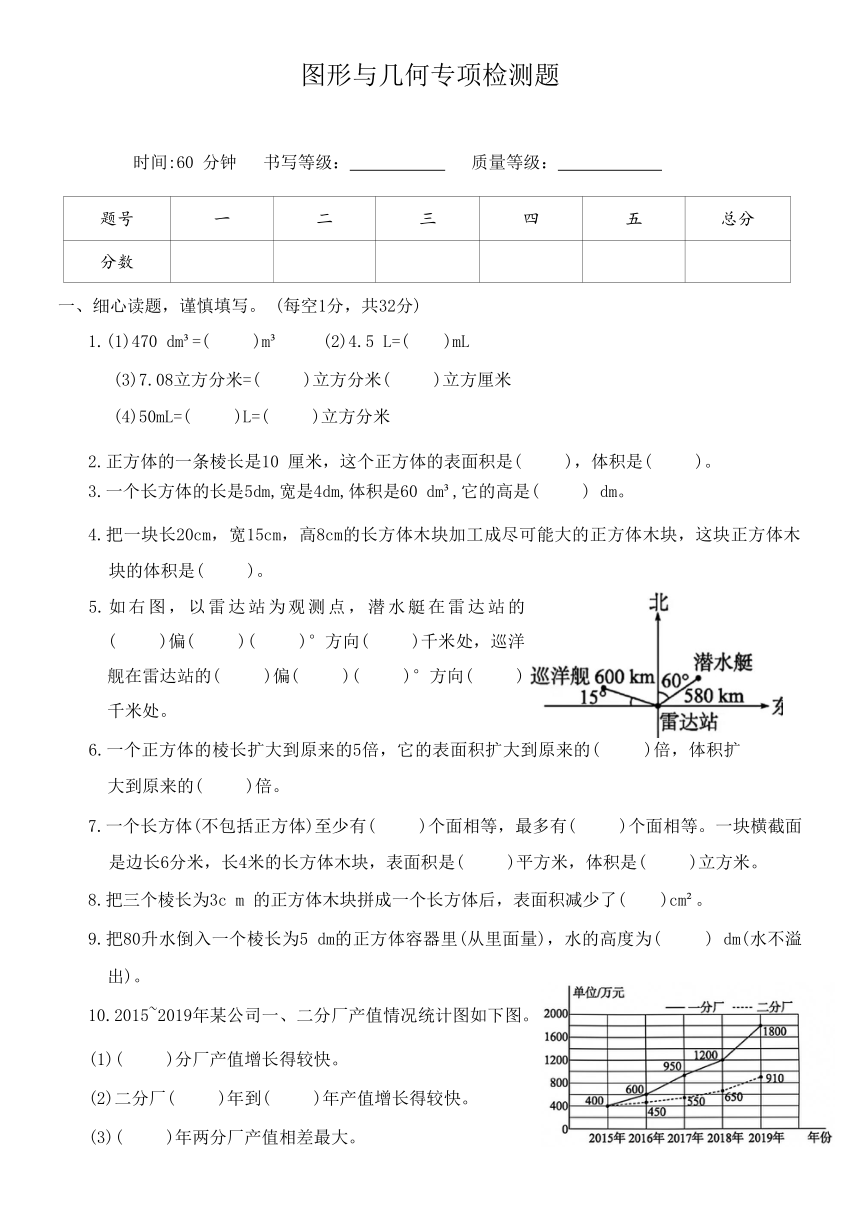 图形与几何专项检测题
时间:60 分钟 书写等级: 质量等级:
题号 一 二 三 四 五 总分
分数
一、细心读题，谨慎填写。 (每空1分，共32分)
1.(1)470 dm³=( )m³ (2)4.5 L=( )mL
(3)7.08立方分米=( )立方分米( )立方厘米
(4)50mL=( )L=( )立方分米
2.正方体的一条棱长是10 厘米，这个正方体的表面积是( )，体积是( )。
3.一个长方体的长是5dm,宽是4dm,体积是60 dm³,它的高是( ) dm。
4.把一块长20cm，宽15cm，高8cm的长方体木块加工成尽可能大的正方体木块，这块正方体木
块的体积是( )。
5.如右图，以雷达站为观测点，潜水艇在雷达站的
( )偏( )( )°方向( )千米处，巡洋
舰在雷达站的( )偏( )( )°方向( )
千米处。
北
潜水艇
巡洋舰 600 km 60°
15° 580 km
东
雷达站
6.一个正方体的棱长扩大到原来的5倍，它的表面积扩大到原来的( )倍，体积扩
大到原来的( )倍。
7.一个长方体(不包括正方体)至少有( )个面相等，最多有( )个面相等。一块横截面
是边长6分米，长4米的长方体木块，表面积是( )平方米，体积是( )立方米。
8.把三个棱长为3c m 的正方体木块拼成一个长方体后，表面积减少了( )cm²。
9.把80升水倒入一个棱长为5 dm的正方体容器里(从里面量)，水的高度为( ) dm(水不溢
出)。
10.2015~2019年某公司一、二分厂产值情况统计图如下图。
(1)( )分厂产值增长得较快。
(2)二分厂( )年到( )年产值增长得较快。
(3)( )年两分厂产值相差最大。
单位/万元
一分厂 二分厂
2000
1600
1200
800
400
0
400 600 950 1200 1800
450 550 650 910
2015年 2016年 2017年 2018年 2019年 年份